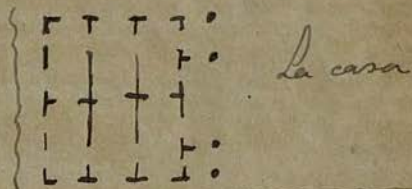 La casa